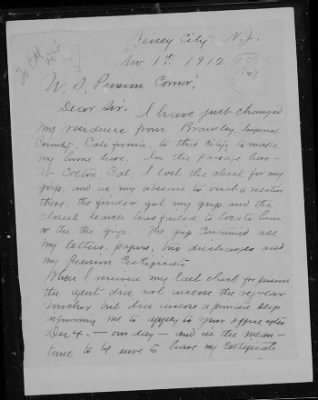 Jersey City, N.J.
Nov 1st, 1912
U. S. Pension Comsr,
Dear Sir. I have just changed
my residence from Brawley, Imperial
County, California, to this City, to make
my home here. In the passage here
at Colton, Cal. I lost the check for my
grip, and in my absence to visit a relative
there, the finder got my grip, and the
closest search has failed to locate him
or the grip. The grip contained all
my letters, papers, two discharges and
my Pension Certificate
When I receive my last check for pension
the agent did not inclose the regular
voucher but did inclose a printed slip
informing me to apply to your office after
Dec 4. — our day — and in the mean-
time to be sure to have my Certificate